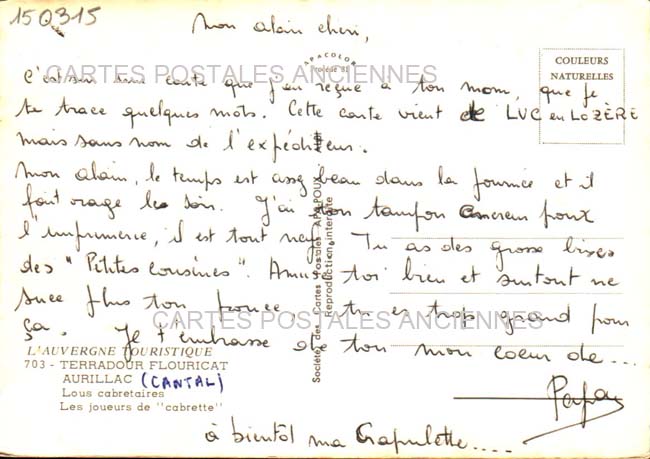 150315
Mon Alain cheri,
APACOLOR
Procédé 81
COULEURS
NATURELLES
CARTES POSTALES ANCIENNES
C'est sur une carte que j'en reçue à ton nom, que je
te trace quelques mots. Cette carte vient de LUC en LOZÈRE
mais sans nom de l'expéditeur.
Mon Alain, le temps est assez beau dans la journée et il
fait orage le soir. J'ai ton tampon encreur pour
l'imprimerie, il est tout neuf. Tu as des grosse bises
des "Petites cousines". Amuse toi bien et surtout ne
suce plus ton pouce, tu es trop grand pour
ça. Je t'embrasse de tout mon coeur de...
CARTES POSTALES ANCIENNES
Papa
à bientôt ma Crapulette....
Société des Cartes Postales APA-POUX - Albi
Reproduction interdite
L'AUVERGNE TOURISTIQUE
703 - TERRADOUR FLOURICAT
AURILLAC (CANTAL)
Lous cabretaires
Les joueurs de "cabrette"